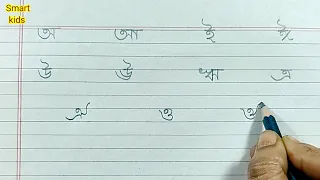 Smart
kids
অ আ ই ঈ
উ ঊ ঋ এ
ঐ ও